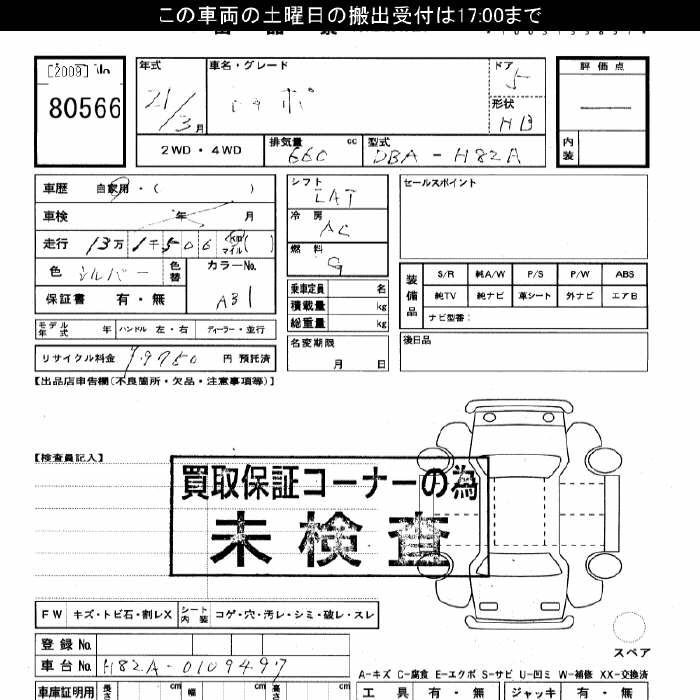 この車両の土曜日の搬出受付は17:00まで
[2009]
80566
年式
21/3月
車名・グレード
トッポ
ドア
5
形状
HB
評価点
内装
2WD・4WD
排気量
660 cc
型式
DBA-H82A
車歴 自家用・( )
車検 年 月
走行 13万1千506 km マイル( )
色 シルバー 色替
カラーNo.
A31
保証書 有・無
モデル年式 年 ハンドル 左・右 ディーラー・並行
リサイクル料金 円 預託済
シフト
LAT
冷房
AC
燃料
G
乗車定員 名
積載量 kg
総重量 kg
名変期限
月 日
セールスポイント
装備品
S/R 純A/W P/S P/W ABS
純TV 純ナビ 革シート 外ナビ エアB
ナビ型番:
後日品
【出品店申告欄(不良箇所・欠品・注意事項等)】
【検査員記入】
買取保証コーナーの為
未検査
FW キズ・トビ石・割レX シート内装 コゲ・穴・汚レ・シミ・破レ・スレ
スペア
登録No.
車台No. H82A-0109497
A-キズ C-腐食 E-エクボ S-サビ U-凹ミ W-補修 XX-交換済
車庫証明用 長さ cm 幅 cm 高さ cm
工具 有・無 ジャッキ 有・無